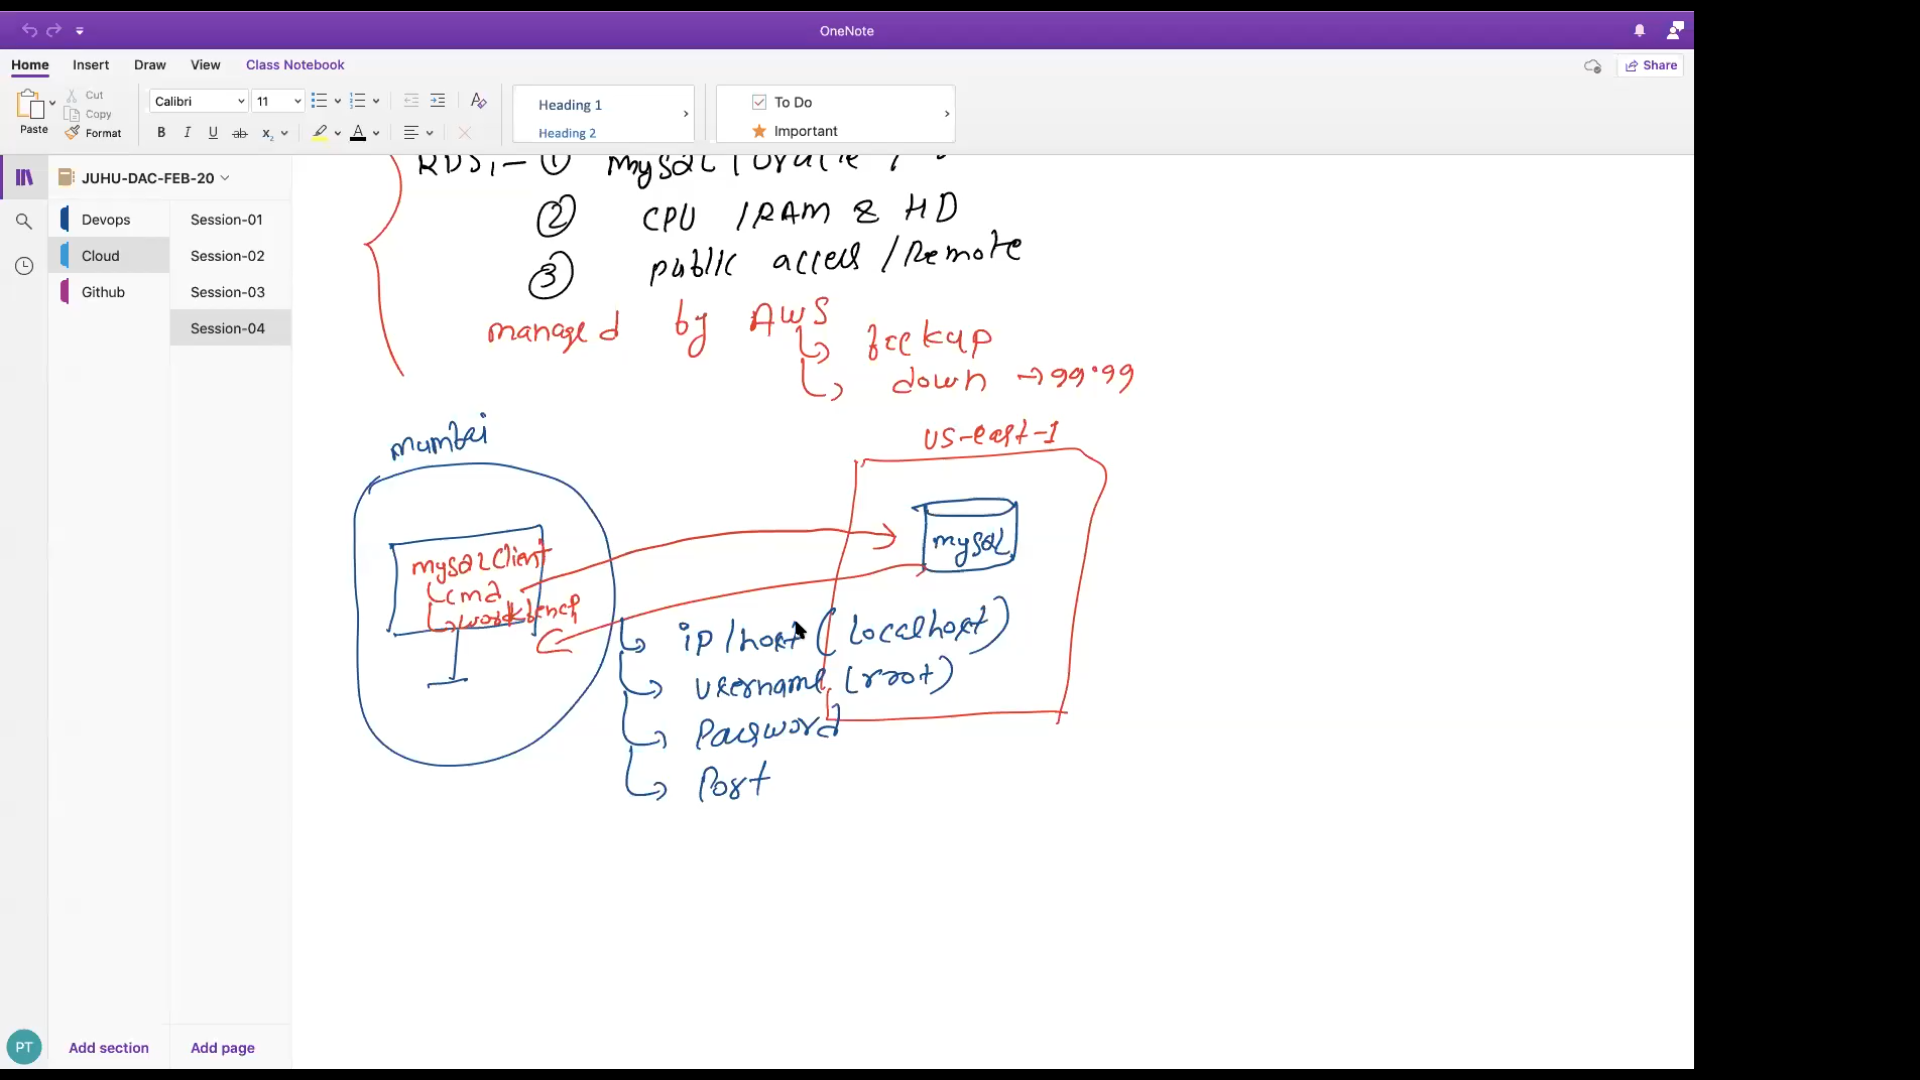 OneNote
Home Insert Draw View Class Notebook
Share
Paste
Cut
Copy
Format
Calibri 11
B I U ab x₂ A
Heading 1
Heading 2
To Do
Important
JUHU-DAC-FEB-20
Devops
Cloud
Github
Session-01
Session-02
Session-03
Session-04
RDS:- ① MySQL / Oracle /
② CPU / RAM & HD
③ public access / Remote
managed by AWS
backup
down → 99.99
mumbai
US-east-1
mysQLClient
cmd
workbench
mysQL
ip / host (localhost)
username (root)
Password
Port
PT
Add section
Add page